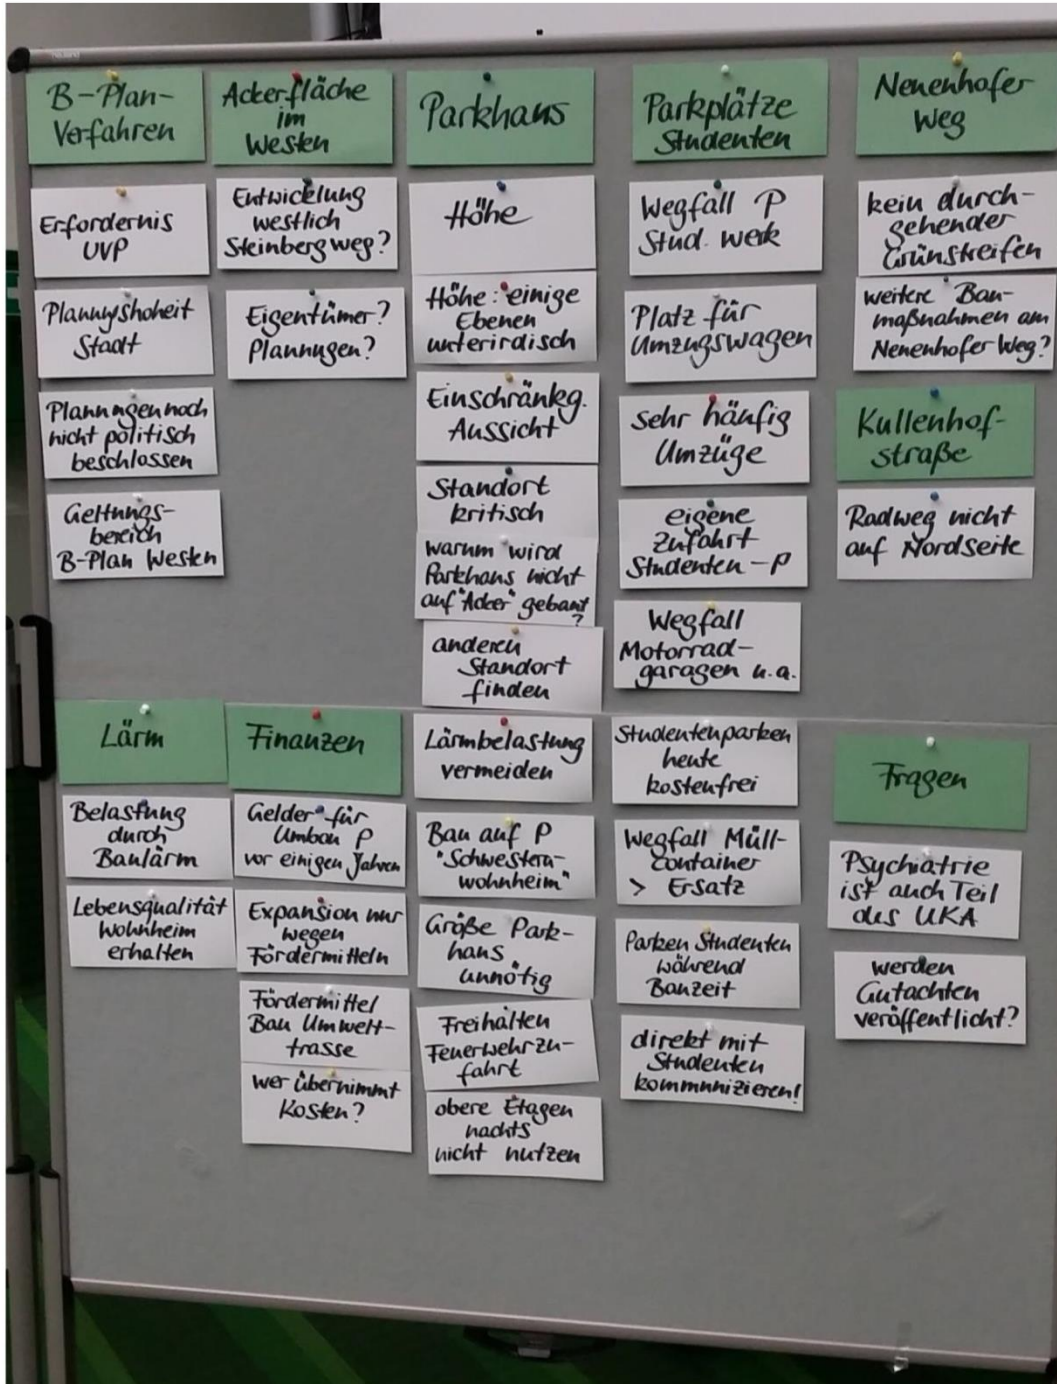 B-Plan-
Verfahren
Erfordernis
UVP
Planungshoheit
Stadt
Planungen noch
nicht politisch
beschlossen
Geltungs-
bereich
B-Plan Westen
Ackerfläche
im
Westen
Entwicklung
westlich
Steinbergweg?
Eigentümer?
Planungen?
Parkhaus
Höhe
Höhe: einige
Ebenen
unterirdisch
Einschränkg.
Aussicht
Standort
kritisch
warum wird
Parkhaus nicht
auf "Acker" gebaut
?
anderen
Standort
finden
Lärmbelastung
vermeiden
Bau auf P
"Schwestern-
wohnheim"
Größe Park-
haus
unnötig
Freihalten
Feuerwehrzu-
fahrt
obere Etagen
nachts
nicht nutzen
Parkplätze
Studenten
Wegfall P
Stud. werk
Platz für
Umzugswagen
sehr häufig
Umzüge
eigene
Zufahrt
Studenten-P
Wegfall
Motorrad-
garagen u.a.
Studentenparken
heute
kostenfrei
Wegfall Müll-
container
> Ersatz
Parken Studenten
während
Bauzeit
direkt mit
Studenten
kommunizieren!
Neuenhofer
Weg
kein durch-
gehender
Grünstreifen
weitere Bau-
maßnahmen am
Neuenhofer Weg?
Kullenhof-
straße
Radweg nicht
auf Nordseite
Lärm
Belastung
durch
Baulärm
Lebensqualität
Wohnheim
erhalten
Finanzen
Gelder für
Umbau P
vor einigen Jahren
Expansion nur
wegen
Fördermitteln
Fördermittel
Bau Umwelt-
trasse
wer übernimmt
Kosten?
Fragen
Psychiatrie
ist auch Teil
des UKA
werden
Gutachten
veröffentlicht?